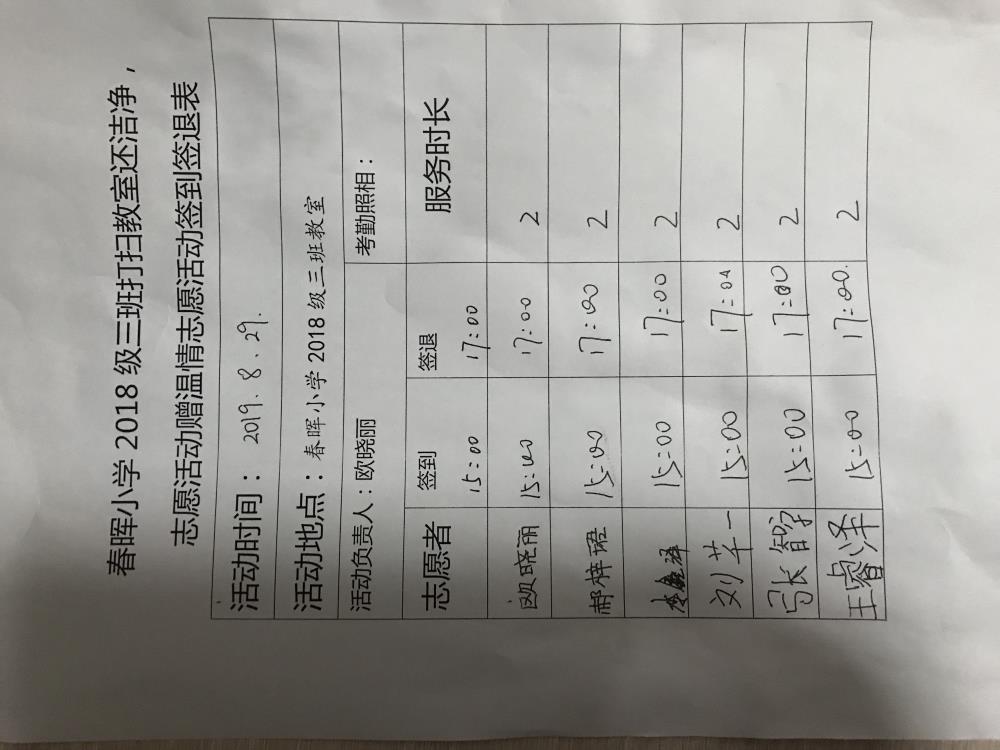 春晖小学 2018 级三班打扫教室还洁净，
志愿活动赠温情志愿活动签到签退表
活动时间： 2019.8.29.
活动地点：春晖小学2018级三班教室
活动负责人：欧晓丽 考勤照相：
志愿者 签到 15:00 签退 17:00 服务时长
欧晓丽 15:00 17:00 2
郝梓珺 15:00 17:00 2
15:00 17:00 2
刘芊一 15:00 17:00 2
张智 15:00 17:00 2
王睿泽 15:00 17:00. 2